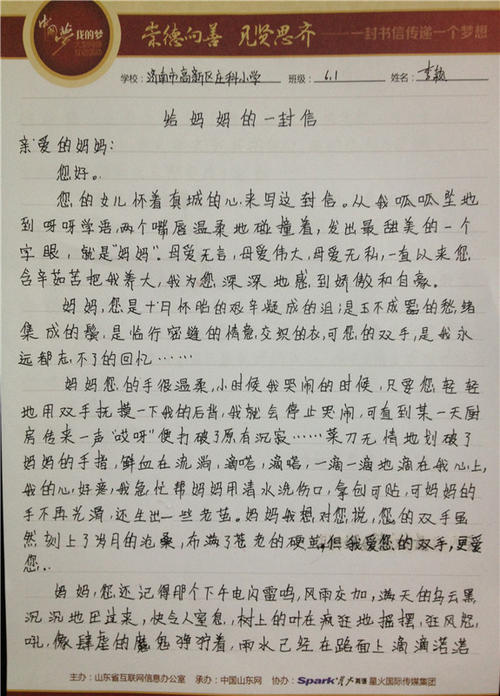 中国梦 我的梦
崇德向善 见贤思齐 ——一封书信传递一个梦想
学校：济南市高新区庄科小学 班级：6.1 姓名：李毓
给妈妈的一封信
亲爱的妈妈：
您好。
您的女儿怀着真城的心来写这封信。从我呱呱坠地
到呀呀学语，两个嘴唇温柔地碰撞着，发出最甜美的一个
字眼，就是"妈妈"。母爱无言，母爱伟大，母爱无私，一直以来您
含辛茹苦把我养大，我为您深深地感到娇傲和自豪。
妈妈，您是十月怀胎的艰辛凝成的泪；是玉不成器的愁绪
集成的鬓，是临行密缝的情意交织的衣，可您的双手，是我永
远都忘不了的回忆……
妈妈您的手很温柔，小时候我哭闹的时候，只要您轻轻
地用双手抚摸一下我的后背，我就会停止哭闹，可直到某一天厨
房传来一声"哎呀"便打破了原有沉寂……菜刀无情地划破了
妈妈的手指，鲜血在流淌，滴嗒，滴嗒，一滴一滴地滴在我心上，
我的心好疼，我急忙帮妈妈用清水洗伤口，拿创可贴，可妈妈的
手不再光滑，还生出一些老茧。妈妈我想对您说，您的双手虽
然刻上了岁月的沧桑，布满了苍老的硬茧，但我爱您的双手，更爱
您..
妈妈，您还记得那个下午电闪雷鸣，风雨交加，满天的乌云黑
沉沉地压过来，快令人窒息，树上的叶在疯狂地摇摆，狂风怒
吼，像肆虐的魔鬼狰狞着，雨水已经在路面上滴滴答答
主办：山东省互联网信息办公室 承办：中国山东网 协办：Spark 星火英语 星火国际传媒集团